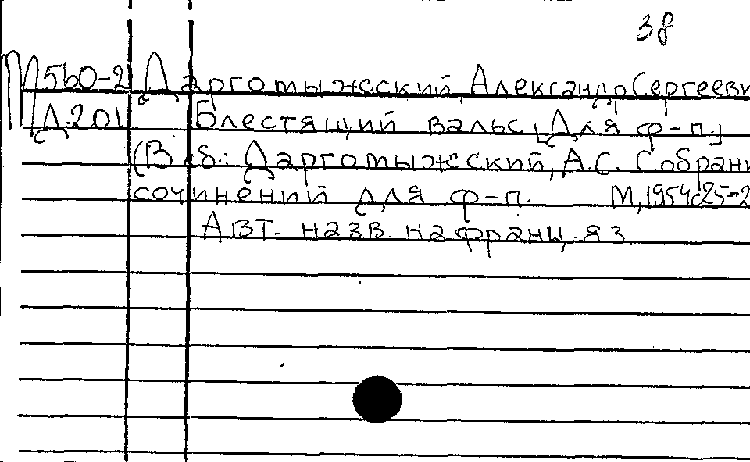 38
М560-2 Даргомыжский, Александр Сергееви
Д201 Блестящий вальс [Для ф-п.]
(В сб.: Даргомыжский, А.С. Собрани
сочинений для ф-п. М, 1954, с 25-2
Авт. назв. на франц. яз